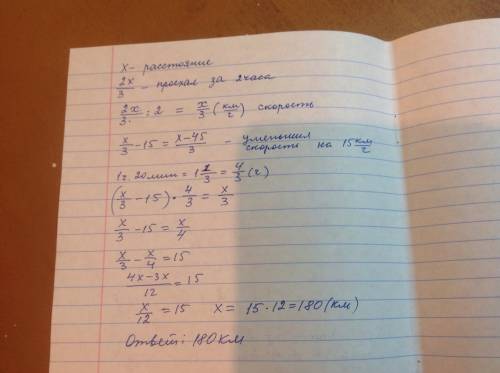 x - расстояние
2x/3 - проехал за 2 часа
2x/3 : 2 = x/3 (км/г) скорость
x/3 - 15 = x-45/3 - уменьшил скорость на 15 км/г
1г. 20мин = 1 1/3 = 4/3 (г)
(x/3 - 15) · 4/3 = x/3
x/3 - 15 = x/4
x/3 - x/4 = 15
4x-3x/12 = 15
x/12 = 15 x = 15 · 12 = 180 (км)
Ответ: 180 км